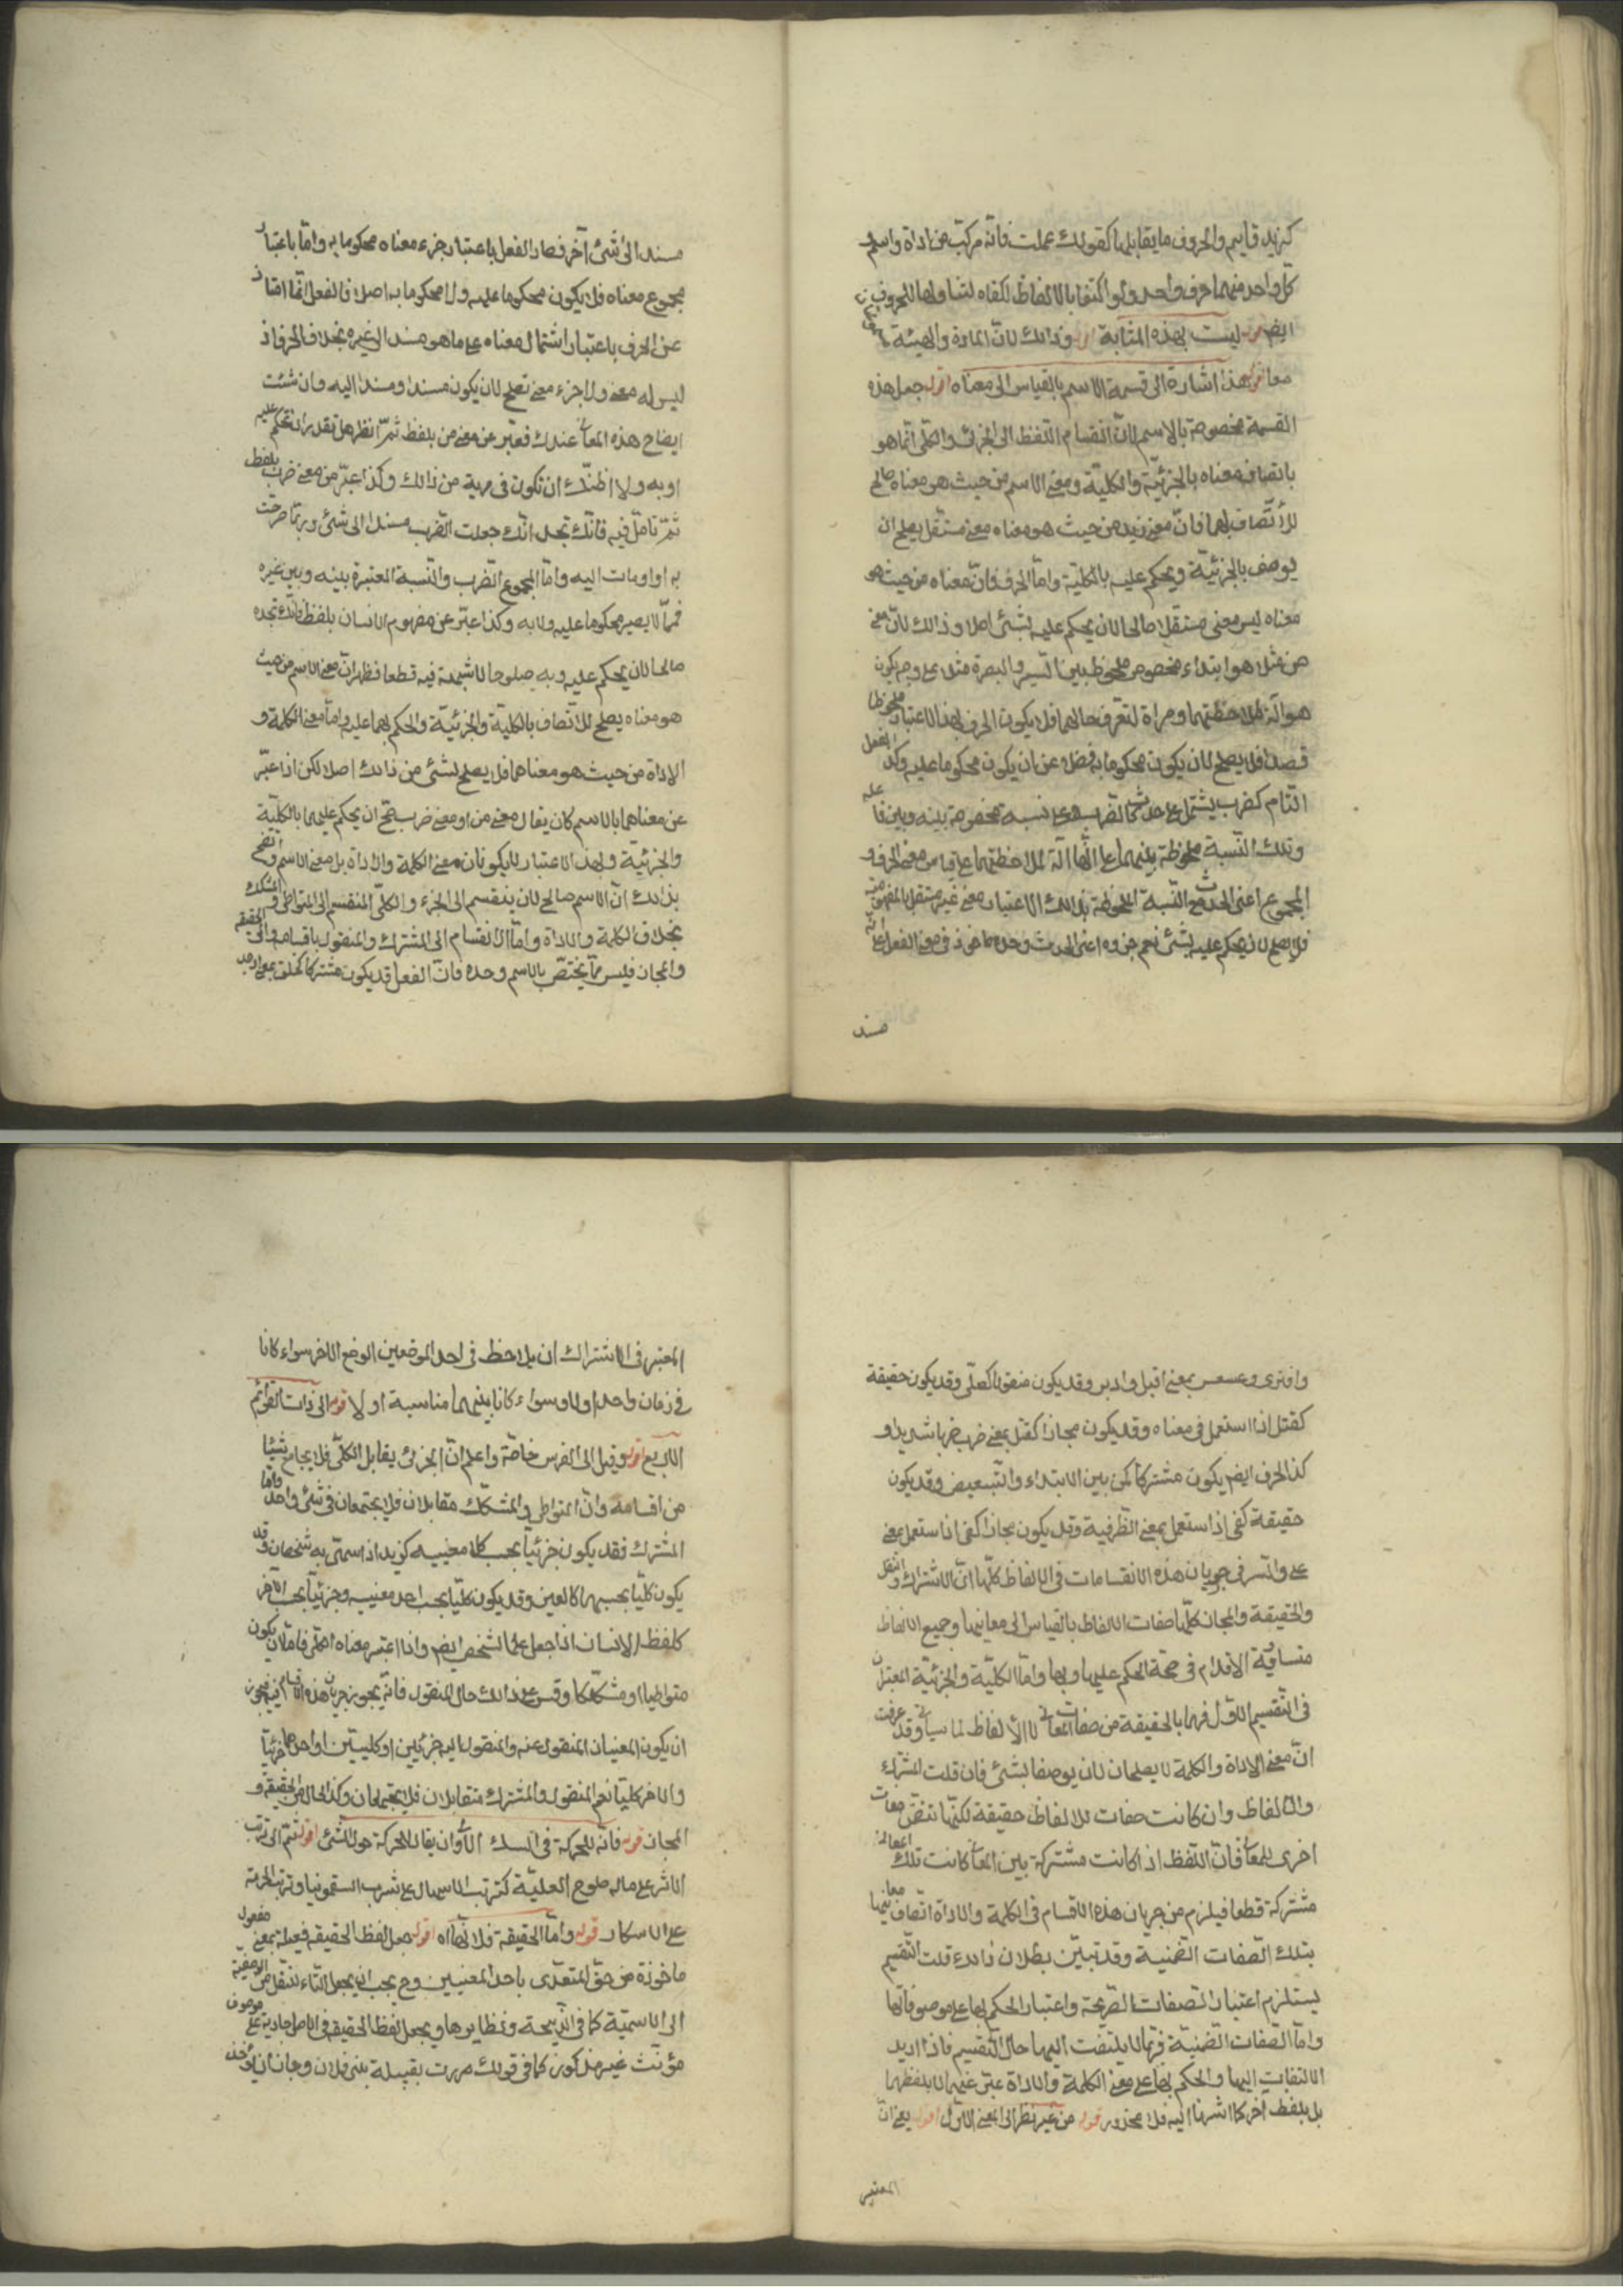 كزيد قايم والحروف ما يقابلها كقولك عملت فانه مركب من اداة واسم
كل واحد منهما حرف واحد ولو اكتفا بالالفاظ لكفاه لتناولها للحروف
ايضا قوله ليست بهذه المثابة اقول وذلك لان المادة والهيئة
معا قوله هذا اشارة الى قسمة الاسم بالقياس الى معناه اقول جعل هذه
القسمة مخصوصة بالاسم لان انقسام اللفظ الى الجزئى والكلى انما هو
باتصاف معناه بالجزئيّة والكلية ومعنى الاسم من حيث هو معناه صالح
للأتّصاف بهما فانّ معنى زيد من حيث هو معناه معنى مستقل يصلح ان
يوصف بالجزئيّة ويحكم عليه بالكليّة وامّا الحرف فانّ معناه من حيث هو
معناه ليس معنى مستقلا صالحا لان يحكم عليه بشئ اصلا وذالك لانّ معنى
من مثلا هو ابتداء مخصوص ملحوظ بين السير والبصرة مثلا على وجه يكون
هو آلة لملاحظتهما ومراة لتعرف حالهما فلا يكون الحرف بهذا الاعتبار ملحوظا
قصدا فلا يصلح لان يكون محكوما به فضلا عن ان يكون محكوما عليه وكذا الفعل
التام كضرب يشتمل على حدث كالضرب وعلى نسبة مخصوصة بينه وبين فاعله
وتلك النّسبة ملحوظة بينهما على انّها آلة لملاحظتهما على قياس معنى الحرف و
المجموع اعنى الحدث مع النّسبة الملحوظة بذالك الاعتبار معنى غير مستقل بالمفهومية
فلا يصلح لان يحكم عليه بشئ نعم جزوه اعنى الحدث وحده ماخوذ فى مفهوم الفعل على انّه
مسند
مسند الى شئ آخر فصار الفعل باعتبار جزء معناه محكوما به وامّا باعتبار
مجموع معناه فلا يكون محكوما عليه ولا محكوما به اصلا فالفعل انّما امتاز
عن الحرف باعتبار اشتمال معناه على ما هو مسند الى غيره بخلاف الحرف اذ
ليس له معنى ولا جزء معنى تصلح لان يكون مسندا ومسندا اليه وان شئت
ايضاح هذه المعانى عندك فعبّر عن معنى من بلفظ ثمّ انظر هل تقدر ان تحكم عليه
او به ولا اظنّك ان تكون فى مرية من ذالك وكذا عبّر عن معنى ضرب بلفظ
ثمّ تامّل فيه فانّك تجد انّك جعلت الضّرب مسندا الى شئ وربما صرحت
به او اومات اليه وامّا المجموع الضّرب والنّسبة المعتبرة بينه وبين غيره
فممّا لا يصير محكوما عليه ولا به وكذا عبّر عن مفهوم الانسان بلفظ فانّك تجده
صالحا لان يحكم عليه وبه صلوحا لا شبهة فيه قطعا فظهر انّ معنى الاسم من حيث
هو معناه يصلح للاتّصاف بالكليّة والجزئيّة والحكم بهما عليه وامّا معنى الكلمة و
الاداة من حيث هو معناهما فلا يصلح لشئ من ذالك اصلا لكن اذا عبّر
عن معناهما بالاسم كان يقال معنى من او معنى ضرب صح ان يحكم عليهما بالكليّة
والجزئيّة وبهذا الاعتبار لا يكونان معنى الكلمة والاداة بل معنى الاسم واتّضح
بذالك انّ الاسم صالح لان ينقسم الى الجزء والكلّى المنقسم الى المتواطى والمشكك
بخلاف الكلمة والاداة وامّا الانقسام الى المشترك والمنقول باقسامه والى الحقيقة
والمجاز فليس ممّا يختصّ بالاسم وحده فانّ الفعل قد يكون مشتركا كخلق بمعنى اوجد
وافترى وعسعس بمعنى اقبل وادبر وقد يكون منقولا كصلّى وقد يكون حقيقة
كقتل اذا استعمل فى معناه وقد يكون مجازا كقتل بمعنى ضرب ضربا شديدا و
كذا الحرف ايضا يكون مشتركا كمن بين الابتداء والتّبعيض وقد يكون
حقيقة كفى اذا استعمل بمعنى الظّرفية وقد يكون مجازا كفى اذا استعمل بمعنى
على والسّر فى جريان هذه الانقسامات فى الالفاظ كلّها انّ الاشتراك والنّقل
والحقيقة والمجاز كلّها صفات الالفاظ بالقياس الى معانيها وجميع الالفاظ
متساوية الاقدام فى صحة الحكم عليها وبها وامّا الكليّة والجزئيّة المعتبران
فى التّقسيم الاوّل فهما بالحقيقة من صفات المعانى لا الألفاظ لما سياتى وقد عرفت
انّ معنى الاداة والكلمة لا يصلحان لان يوصفا بشئ فان قلت المشترك
والالفاظ وان كانت صفات للالفاظ حقيقة لكنّها تتضمّن صفات
اخرى للمعانى فانّ اللفظ اذا كانت مشتركة بين المعانى كانت تلك المعانى
مشتركة قطعا فيلزم من جريان هذه الاقسام فى الكلمة والاداة اتّصاف معانيهما
بتلك الصّفات الضّمنية وقد تبيّن بطلان ذالك قلت التّقسيم
يستلزم اعتبار الصفات الصّريحة واعتبار الحكم بها على موصوفاتها
وامّا الصّفات الضّمنيّة فربّما لا يلتفت اليها حال التّقسيم فاذا اريد
الالتفات اليها والحكم بها على معنى الكلمة والاداة عبّر عنهما لا بلفظهما
بل بلفظ آخر كما اشرنا اليه فلا محذور قوله من غير نظر الى المعنى الاوّل اقول يعنى انّ
المعتبر
المعتبر فى الاشتراك ان يلاحظ فى احد الموضعين الوضع الاخر سواء كانا
فى زمان واحد او لا وسواء كانا بينهما مناسبة او لا قوله الى ذات القوائم
الاربع اقول وقيل الى الفرس خاصّة واعلم انّ الجزئى يقابل الكلّى فلا يجامع شيئا
من اقسامه وانّ المتواطى والمشكّك متقابلان فلا يجتمعان فى شئ واحد وامّا
المشترك فقد يكون جزئيّا بحسب كلا معنييه كزيد اذا سمّى به شخصان وقد
يكون كليّا بحسبهما كالعين وقد يكون كليّا بحسب احد معنييه وجزئيّا بحسب الآخر
كلفظ الانسان اذا جعل علما لشخص ايضا واذا اعتبر معناه الكلّى فامّا ان يكون
متواطيا او مشكّكا وقس على ذالك حال المنقول فانّه يجوز جريان هذه الاقسام فيه فيجوز
ان يكون المعنيان المنقول عنه والمنقول اليه جزئيّين او كليّيتين او احدهما جزئيّا
والاخر كليّا نعم المنقول والمشترك متقابلان فلا يجتمعان وكذا الحال فى الحقيقة و
المجاز قوله فانّه للحركة فى السكك الأوان يقال للحركة حول الشئ اقول ثمّ الى ترتّب
الاثر على ماله صلوح العليّة كترتب الاسهال على شرب السقمونيا وترتب الحرمة
على الاسكار قوله وامّا الحقيقة فلانّها اه اقول جعل لفظ الحقيقة فعيلة بمعنى مفعول
ماخوذة من حقّ المتعدّى باحد المعنيين وح يجب ان يجعل التّاء للنّقل من الوصفيّة
الى الاسميّة كما فى الذّبيحة ونظايرها ويجعل لفظ الحقيقة فى الاصل جارية على موصوف
مؤنّث غير مذكور كما فى قولك مررت بقبيلة بنى فلان وجاز ان يؤخذ